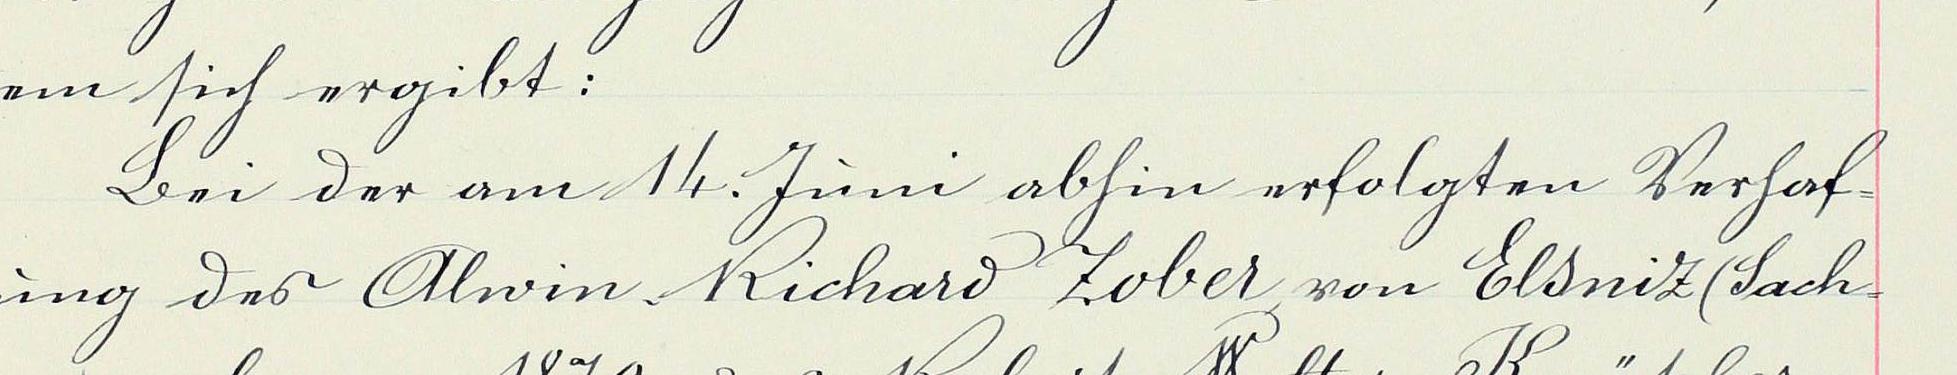 em sich ergibt:
Bei der am 14. Juni abhin erfolgten Verhaf-
ung des Alwin Richard Zober von Elsniz (Sach-